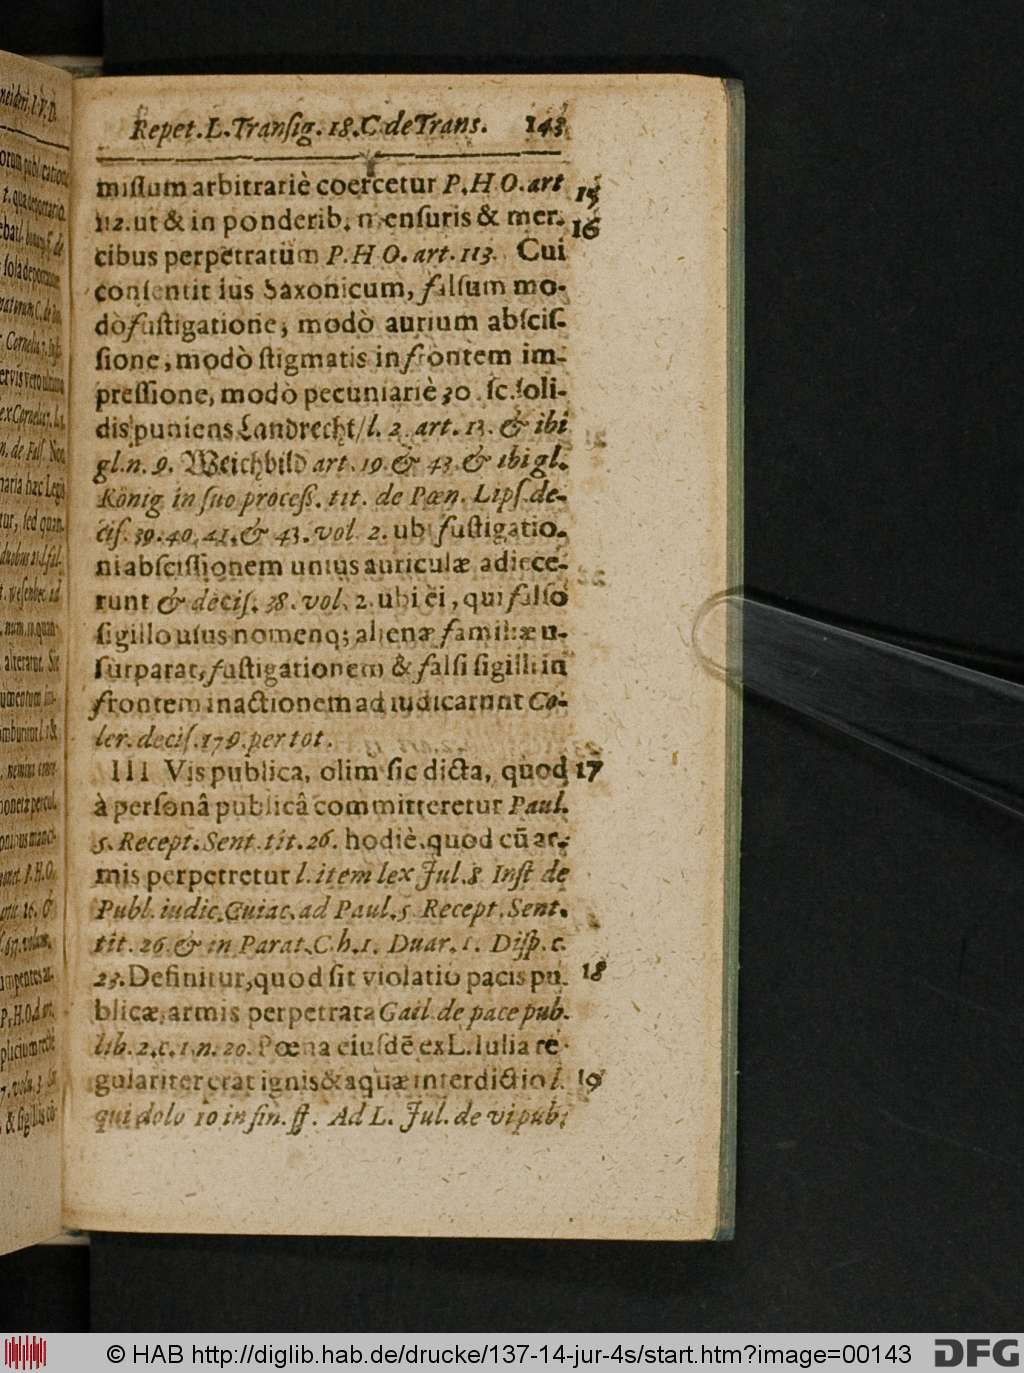 Repet. L. Tranſig. 18. C de Trans. 143
miſſum arbitrariè coercetur P. H O. art 15
112. ut & in ponderib. menſuris & mer- 16
cibus perpetratum P. H O. art. 113. Cui
conſentit ius Saxonicum, falſum mo-
dò fuſtigatione, modò aurium abſciſ-
ſione, modò ſtigmatis in frontem im-
preſſione, modò pecuniariè 30. ſc. ſoli-
dis puniens Landrecht/ l. 2. art. 13. & ibi
gl. n. 9. Weichbild art. 19. & 43. & ibi gl.
König in ſuo proceſſ. tit. de Pœn. Lipſ. de-
ciſ. 39. 40. 41. & 43. vol 2. ubi fuſtigatio-
ni abſciſſionem unius auriculæ adiece-
runt & deciſ. 38. vol. 2. ubi ei, qui falſo
ſigillo uſus nomenq; alienæ familiæ u-
ſurparat, fuſtigationem & falſi ſigilli in
frontem inactionem adiudicarunt Co-
ler. deciſ. 179. per tot.
III Vis publica, olim ſic dicta, quod 17
à perſonâ publicâ committeretur Paul.
5. Recept. Sent. tit. 26. hodiè, quod cū ar-
mis perpetretur l. item lex Jul. 8 Inſt de
Publ. iudic. Cuiac. ad Paul. 5. Recept. Sent.
tit. 26. & in Parat. C. h. 1. Duar. 1. Diſp. c.
23. Definitur, quod ſit violatio pacis pu- 18
blicæ, armis perpetrata Gail de pace pub.
lib. 2. c. 1. n. 20. Pœna eiuſdē ex L. Iulia re-
gulariter erat ignis & aquæ interdictio l. 19
qui dolo 10 in fin. ff. Ad L. Jul. de vi pub;
© HAB http://diglib.hab.de/drucke/137-14-jur-4s/start.htm?image=00143
DFG